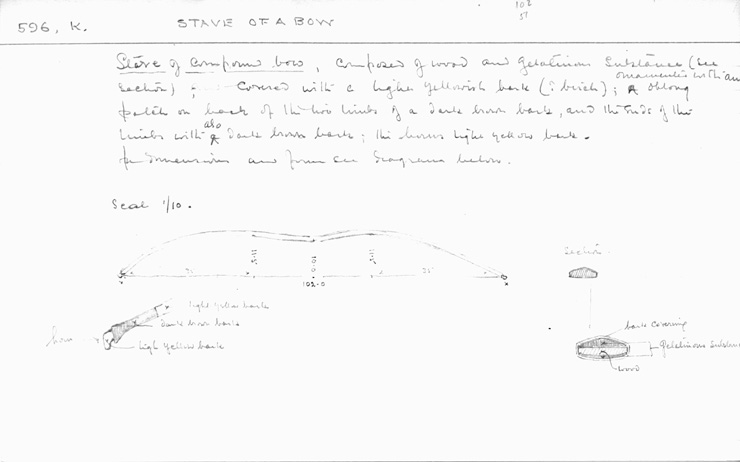 102
51
596, K. STAVE OF A BOW
Stave of compound bow, composed of wood and gelatinous substance (see
ornamented with an
section); covered with a light yellowish bark (? birch); oblong
patch on back of the two limbs of a dark brown bark, and the ends of the
also
limbs with dark brown bark; the horns light yellow bark.
For dimensions and form see diagrams below.
Scale 1/10.
Section.
102-0
light yellow bark
dark brown bark
light yellow bark
bark covering
gelatinous substance
wood